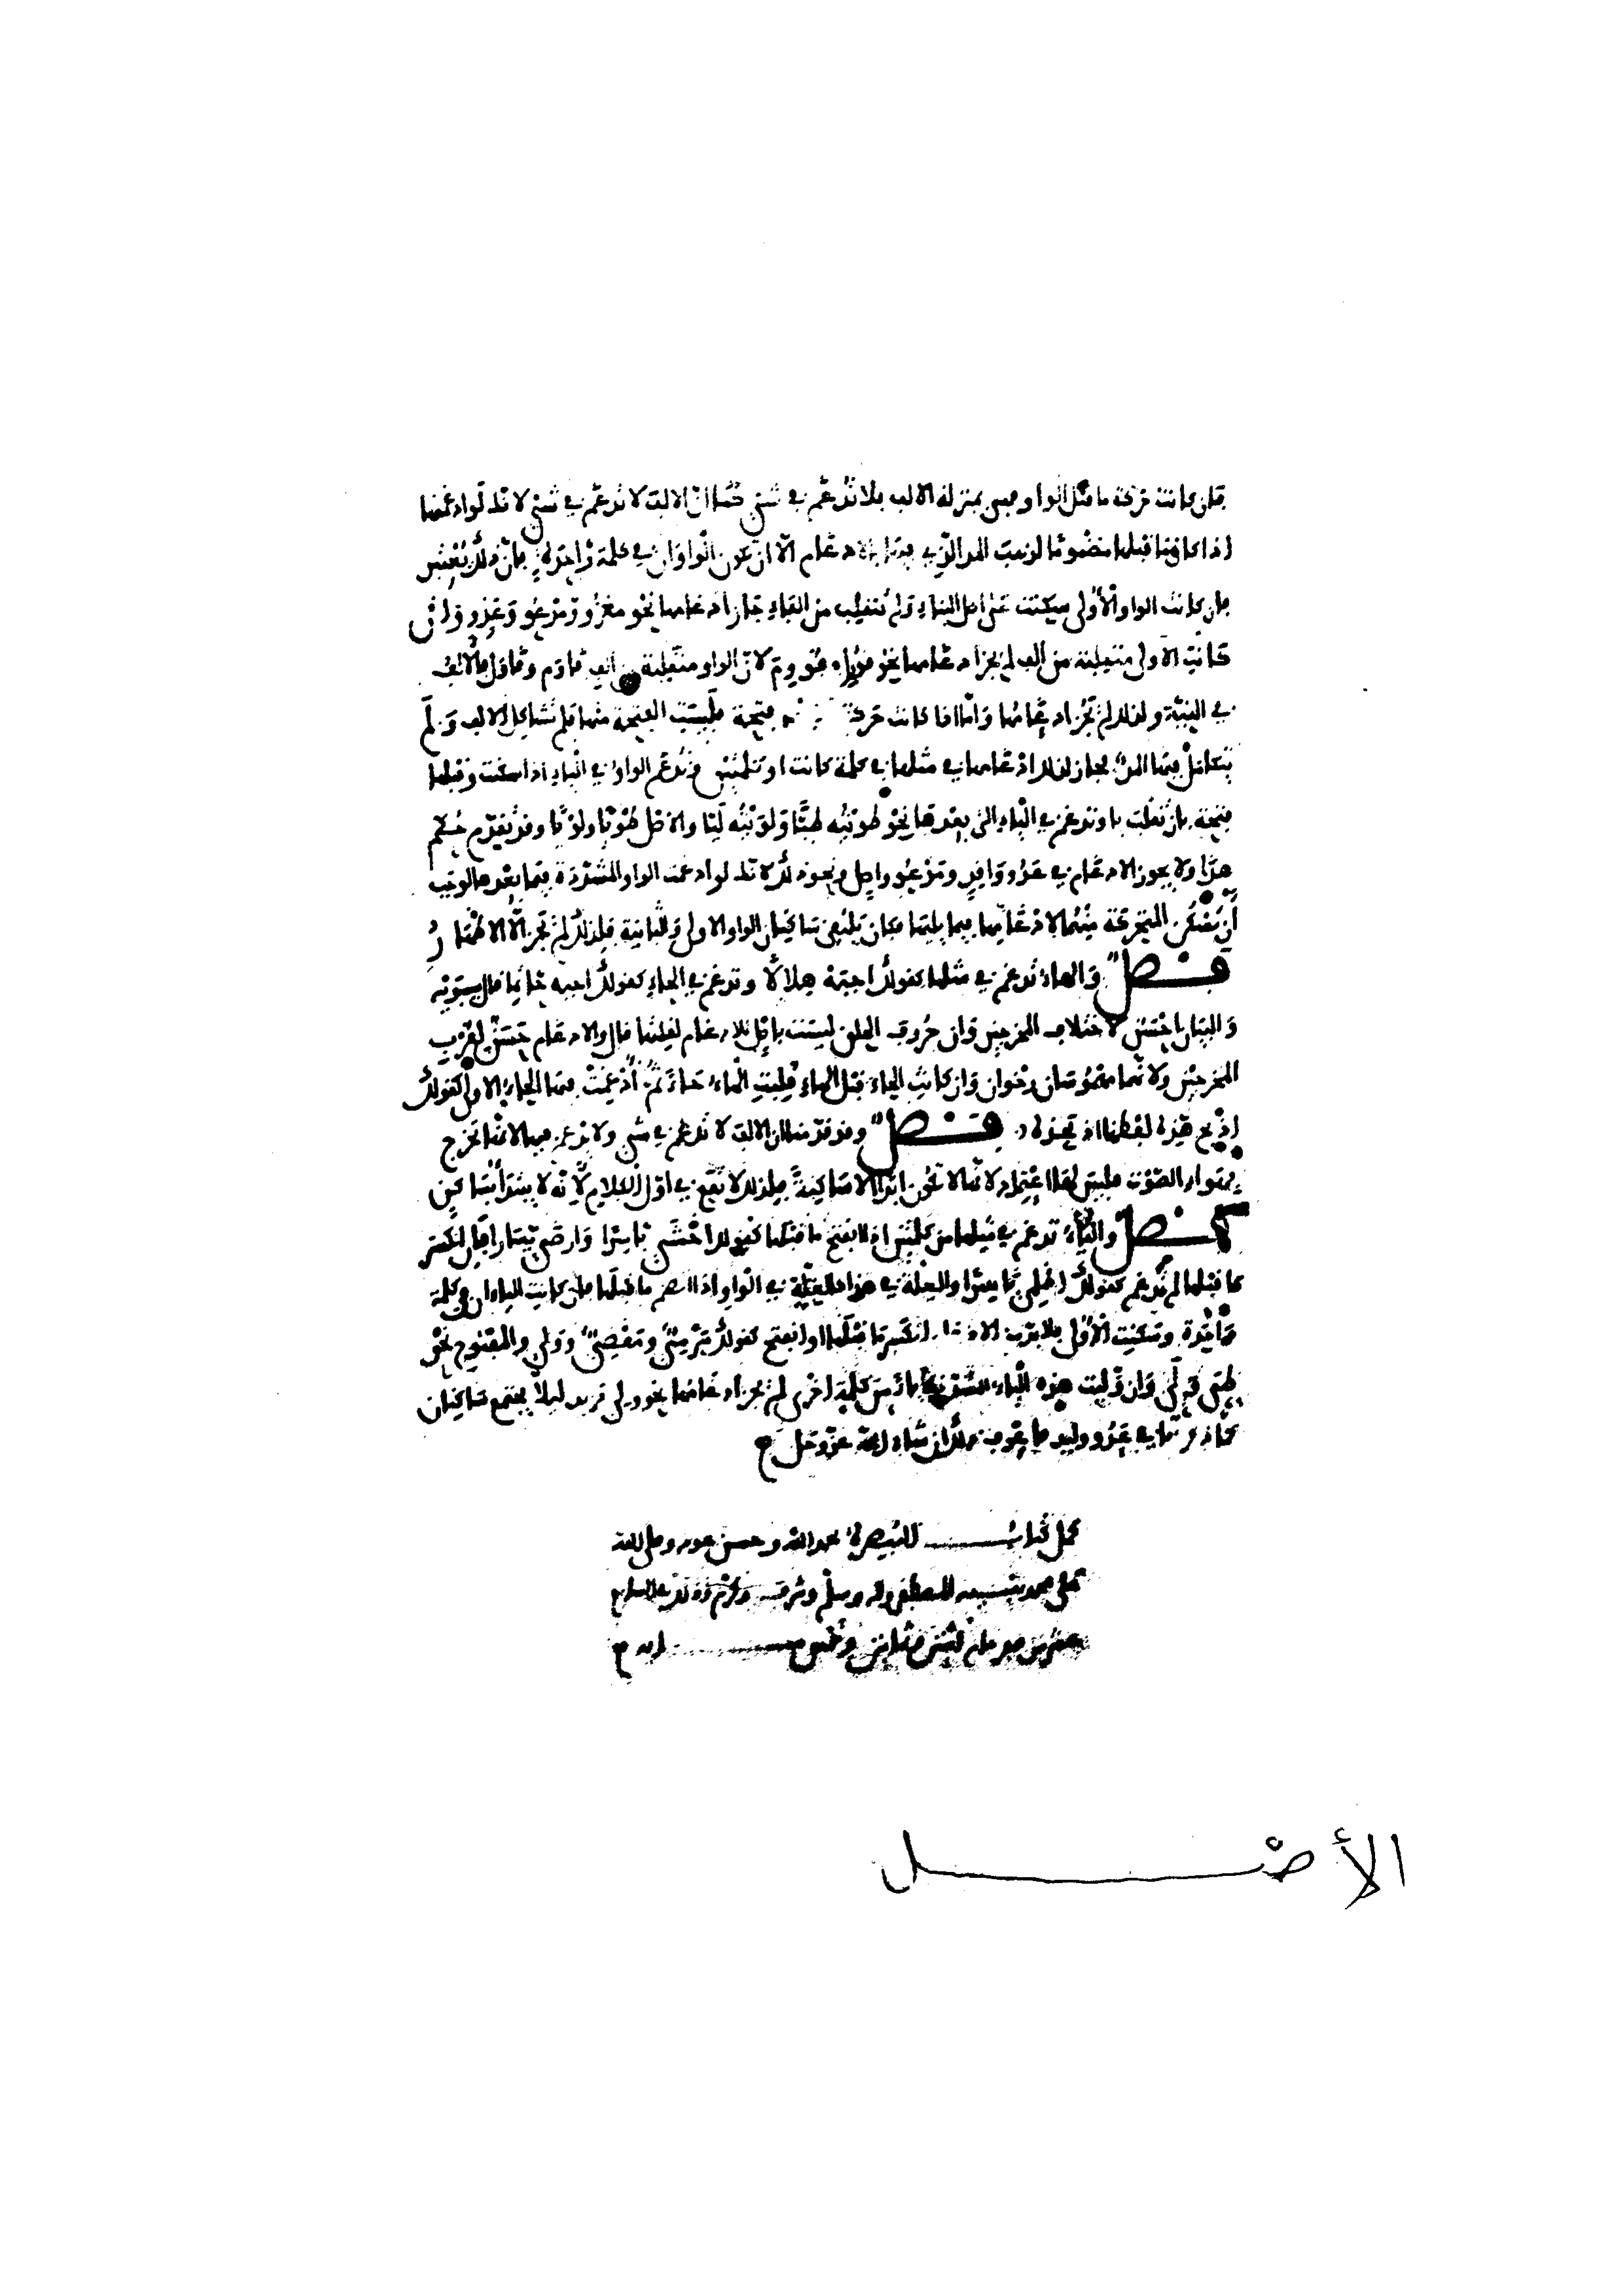 فإن كانت حركة ما قبل الواو فهي بمنزلة الالف فلا تُدغم في شيء كما أنّ الالف لا تدغم في شيء لانك لو ادغمتها
اذا كان ما قبلها مضموما لذهب المد الذي فيها بالادغام الّا ان تكون الواوان في كلمة واحدة فإنّ ذلك
فإن كانت الواو الأولى سكنت على اصل البناء ولم تنقلب من الف جاز ادغامها نحو مغزوّ ومدعوّ وعدوّ وإن
كانت الأولى منقلبة من الف لم يجز ادغامها نحو قووم لانّ الواو منقلبة من الف قاوم وقاول فالالف
في النيّة ولذلك لم يجز ادغامها وامّا اذا كانت حركة فتحة فليست الفتحة منها فلم تشاكل الالف ولم
يتكامل فيها المدّ فجاز لذلك ادغامها في مثلها في كلمة كانت او كلمتين وتُدغم الواو في الياء اذا سكنت وقبلها
فتحة بأن تقلب ياء وتدغم في الياء التي بعدها نحو طويته طيّا ولويته ليّا والاصل طويا ولويا وقد تقدّم حكم
هذا ولا يجوز الادغام في عدوّ وافد ومدعوّ واصل ونحو ذلك لانك لو ادغمت الواو المشدّدة فيما بعدها لوجب
أن تسكن المتحركة منهما لادغامها فيما يليها فكان يلتقي ساكنان الواو الاولى والثانية فلذلك لم يجز الّا الاظهار
فصل والهاء تدغم في مثلها كقولك اجبه هلالا وتدغم في الحاء كقولك اجبه حاتما قال سيبويه
والبيان احسن لاختلاف المخرجين وان حروف الحلق ليست باصل للادغام لقلتها قال والادغام حسن لقرب
المخرجين ولانهما مهموسان رخوان وان كانت الحاء قبل الهاء قلبت الهاء حاء ثم أُدغمت فيها الحاء الاولى كقولك
اذبح هذه لفظها اذبحّذه فصل وقد قدّمنا ان الالف لا تدغم في شيء ولا يدغم فيها لانها تخرج
بهواء الصّوت فليس لها اعتماد لانها لا تكون ابدا الا ساكنة فلذلك لا تقع في اوّل الكلام لأنّه لا يبتدأ بساكن
فصل والياء تدغم في مثلها من كلمتين اذا انفتح ما قبلها كقولك اخشى ياسرا وارضى يسارا فإن انكسر
ما قبلها لم تدغم كقولك اظلمي ياسرا والعلّة في هذا كالعلّة في الواو اذا انضم ما قبلها فإن كانت الياءان في كلمة
واحدة وسكنت الأولى فلا بدّ من الادغام انكسر ما قبلها او انفتح كقولك برميّ وبقصيّ ووليّ والمفتوح نحو
طيّ وليّ وإن وليت هذه الياء المشدّدة ياء من كلمة اخرى لم يجز ادغامها نحو وليّ يزيد لئلّا يجتمع ساكنان
كما ذكرنا في عدوّ وليد فاعرف ذلك ان شاء الله عزّ وجلّ
كمل كتاب التبصرة بحمد الله وحسن عونه وصلى الله
على محمد نبيه المصطفى واله وسلّم وشرّف وكرّم وذلك
عشر من
الأصْل